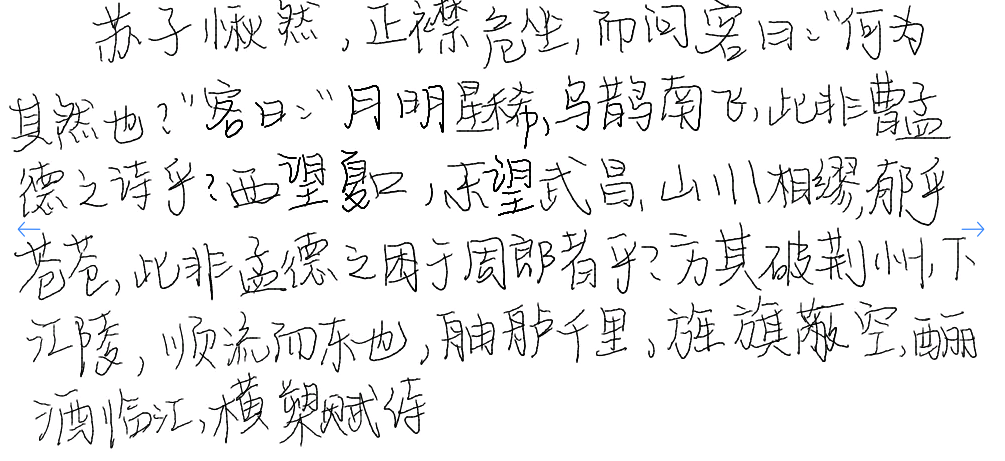 苏子愀然，正襟危坐，而问客曰：“何为
其然也？”客曰：“月明星稀，乌鹊南飞，此非曹孟
德之诗乎？西望夏口，东望武昌，山川相缪，郁乎
苍苍，此非孟德之困于周郎者乎？方其破荆州，下
江陵，顺流而东也，舳舻千里，旌旗蔽空，酾
酒临江，横槊赋诗